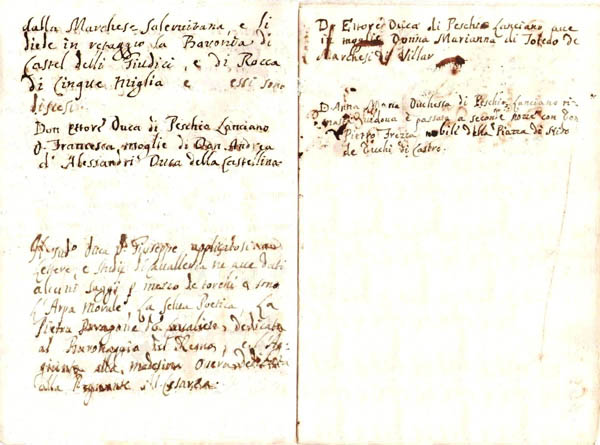 dalla Marchese Salernitana e li
diede in retaggio la Baronia di
Castel delli Giudici, e di Rocca
di Cinque miglia e essi sono
discesi.
Don Ettore Duca di Peschio Lanciano
D. Francesca, moglie di Don Andrea
d' Alessandri Duca della Castellina.
Duca D. Giuseppe applicatosi
lettere, e studij di Cavalleria ne ave dati
alcuni saggi p mezzo de torchi e sono
L'Arpa Morale, La Selva Poetica, La
Pietra Paragone de Cavalieri, dedicata
al Baronaggio del Regno, e
alla medesima Opera dedicata
alla Regnante Cesarea.
D. Ettore Duca di Peschio Lanciano ave
in moglie Donna Marianna di Toledo de
Marchesi di Villar
D. Anna Maria Duchessa di Peschio Lanciano ri
masta vidova è passata a seconde nozze con Don
Pietro Frezza nobile della Piazza di Nido
de Duchi di Castro.